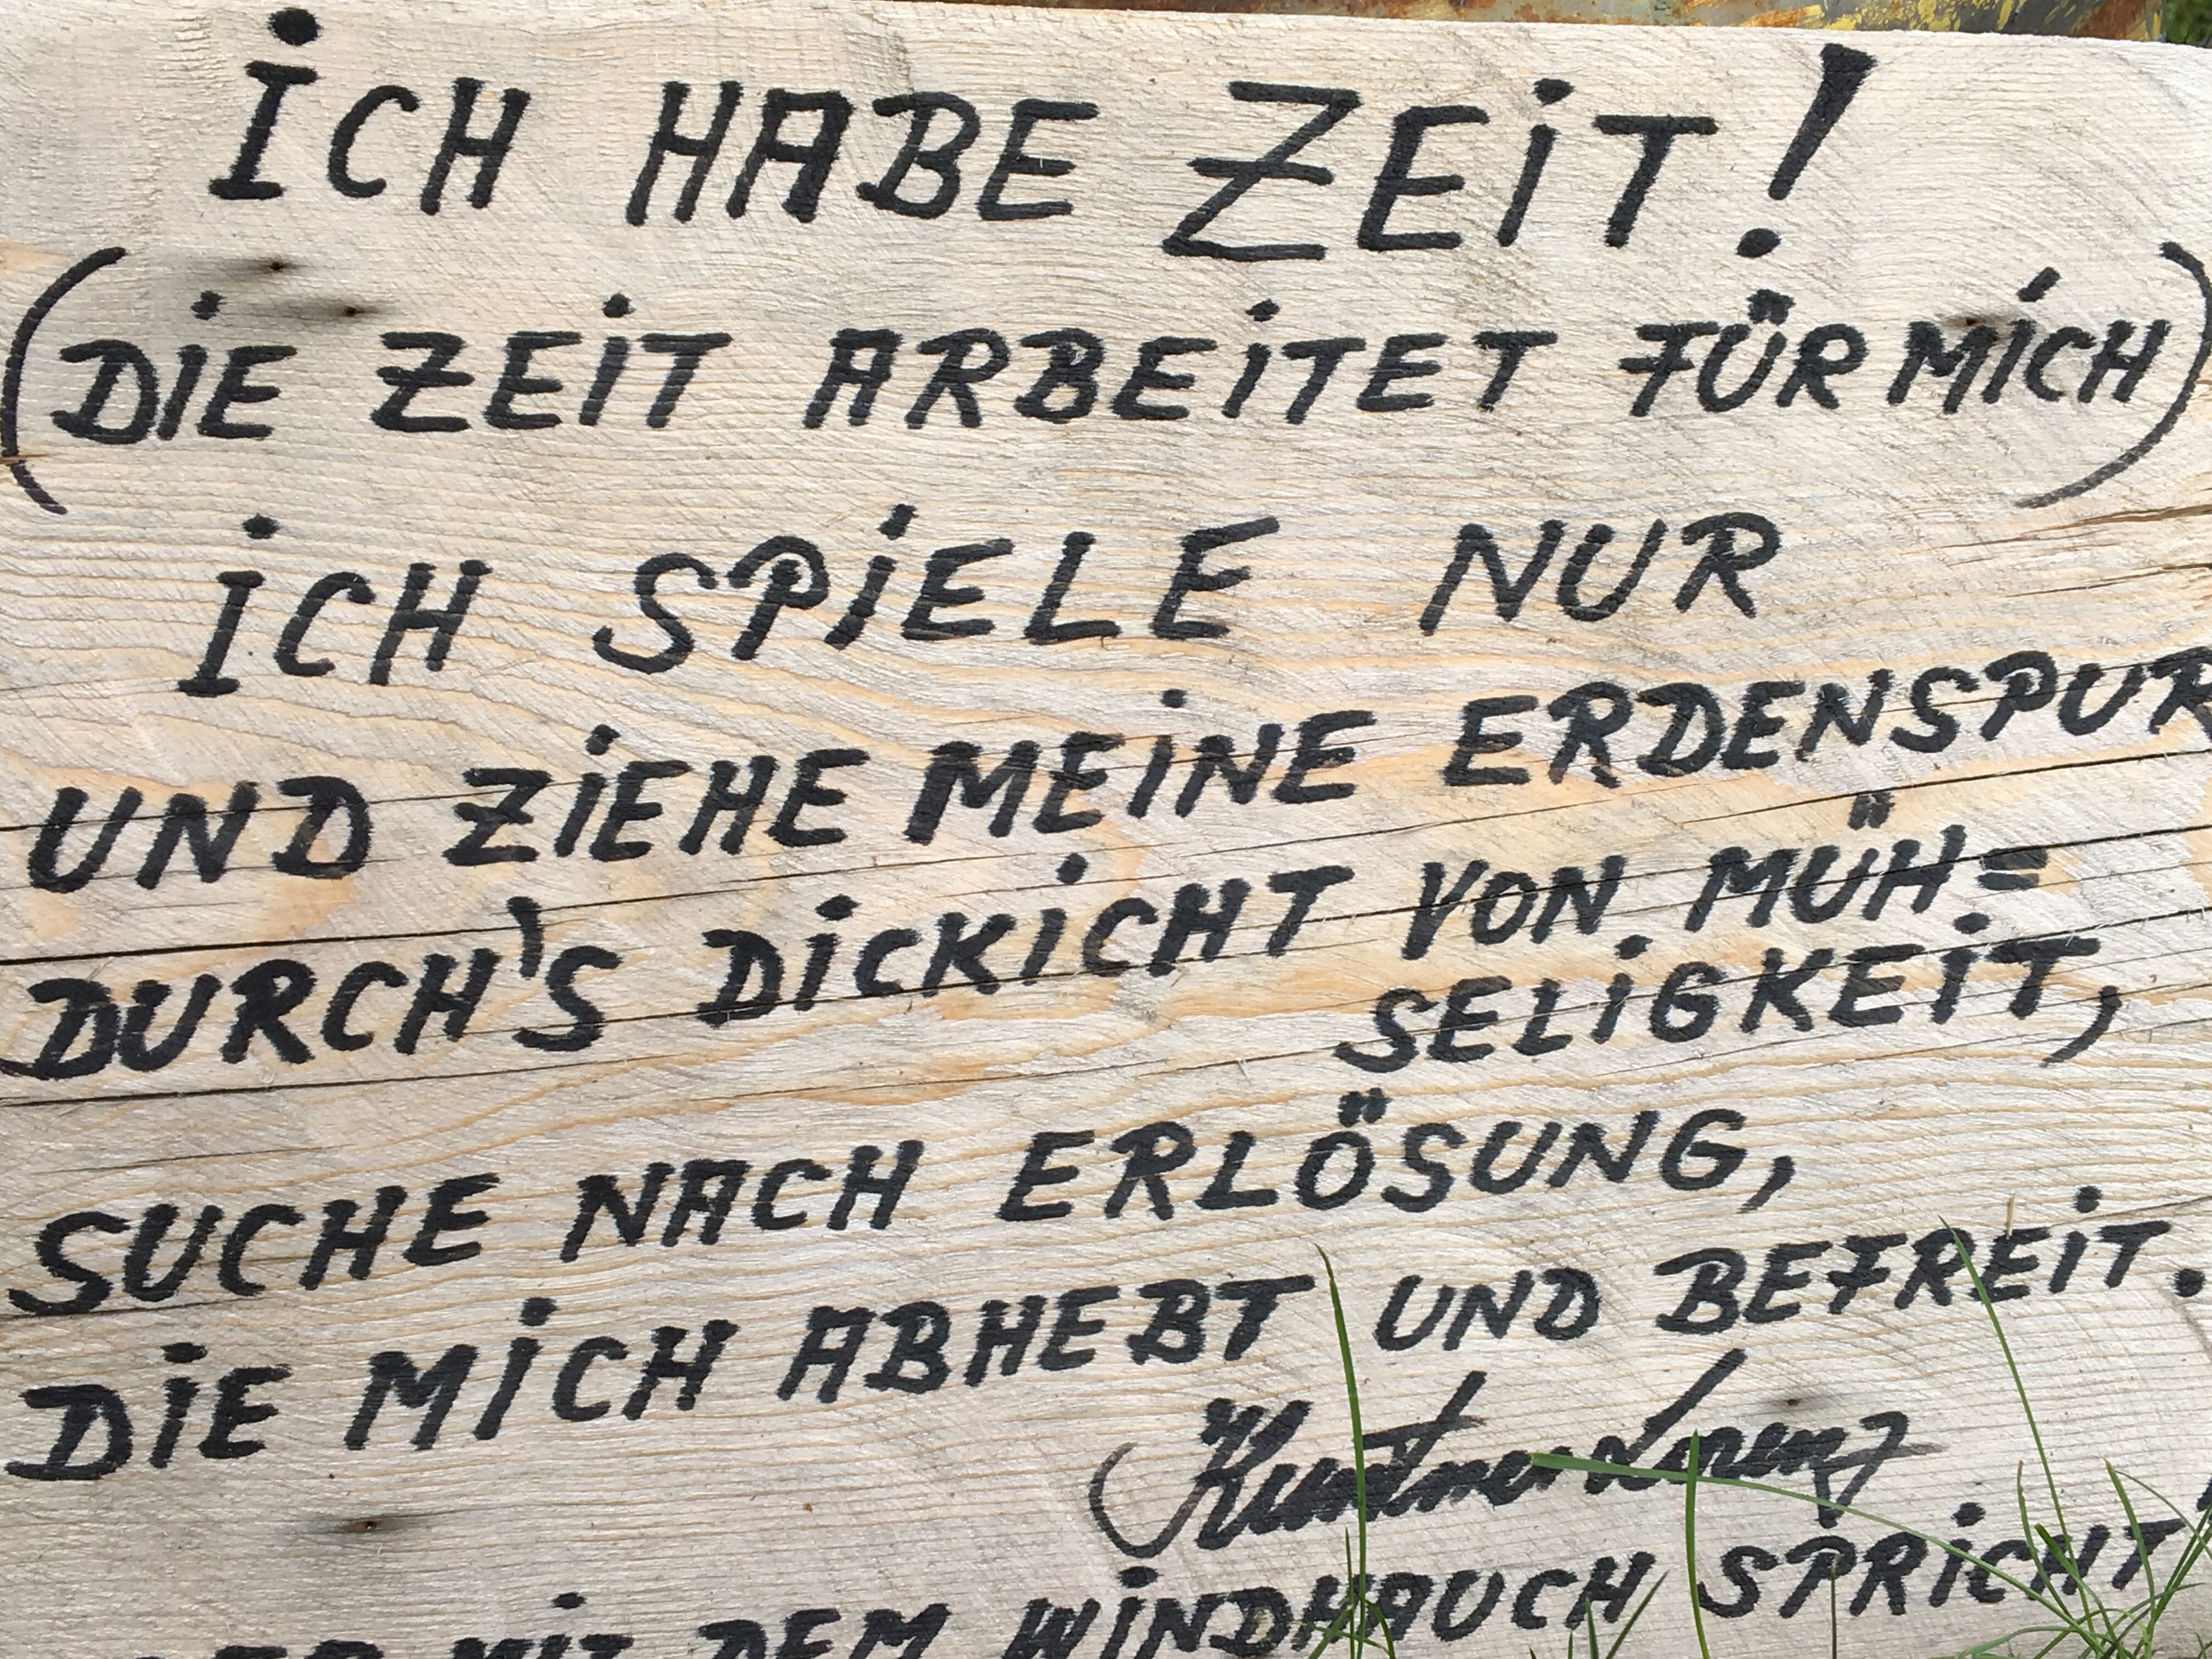 ICH HABE ZEIT!
(DIE ZEIT ARBEITET FÜR MICH)
ICH SPIELE NUR
UND ZIEHE MEINE ERDENSPUR
DURCH'S DICKICHT VON MÜH=
SELIGKEIT,
SUCHE NACH ERLÖSUNG,
DIE MICH ABHEBT UND BEFREIT.
MIT DEM WINDHAUCH SPRICHT